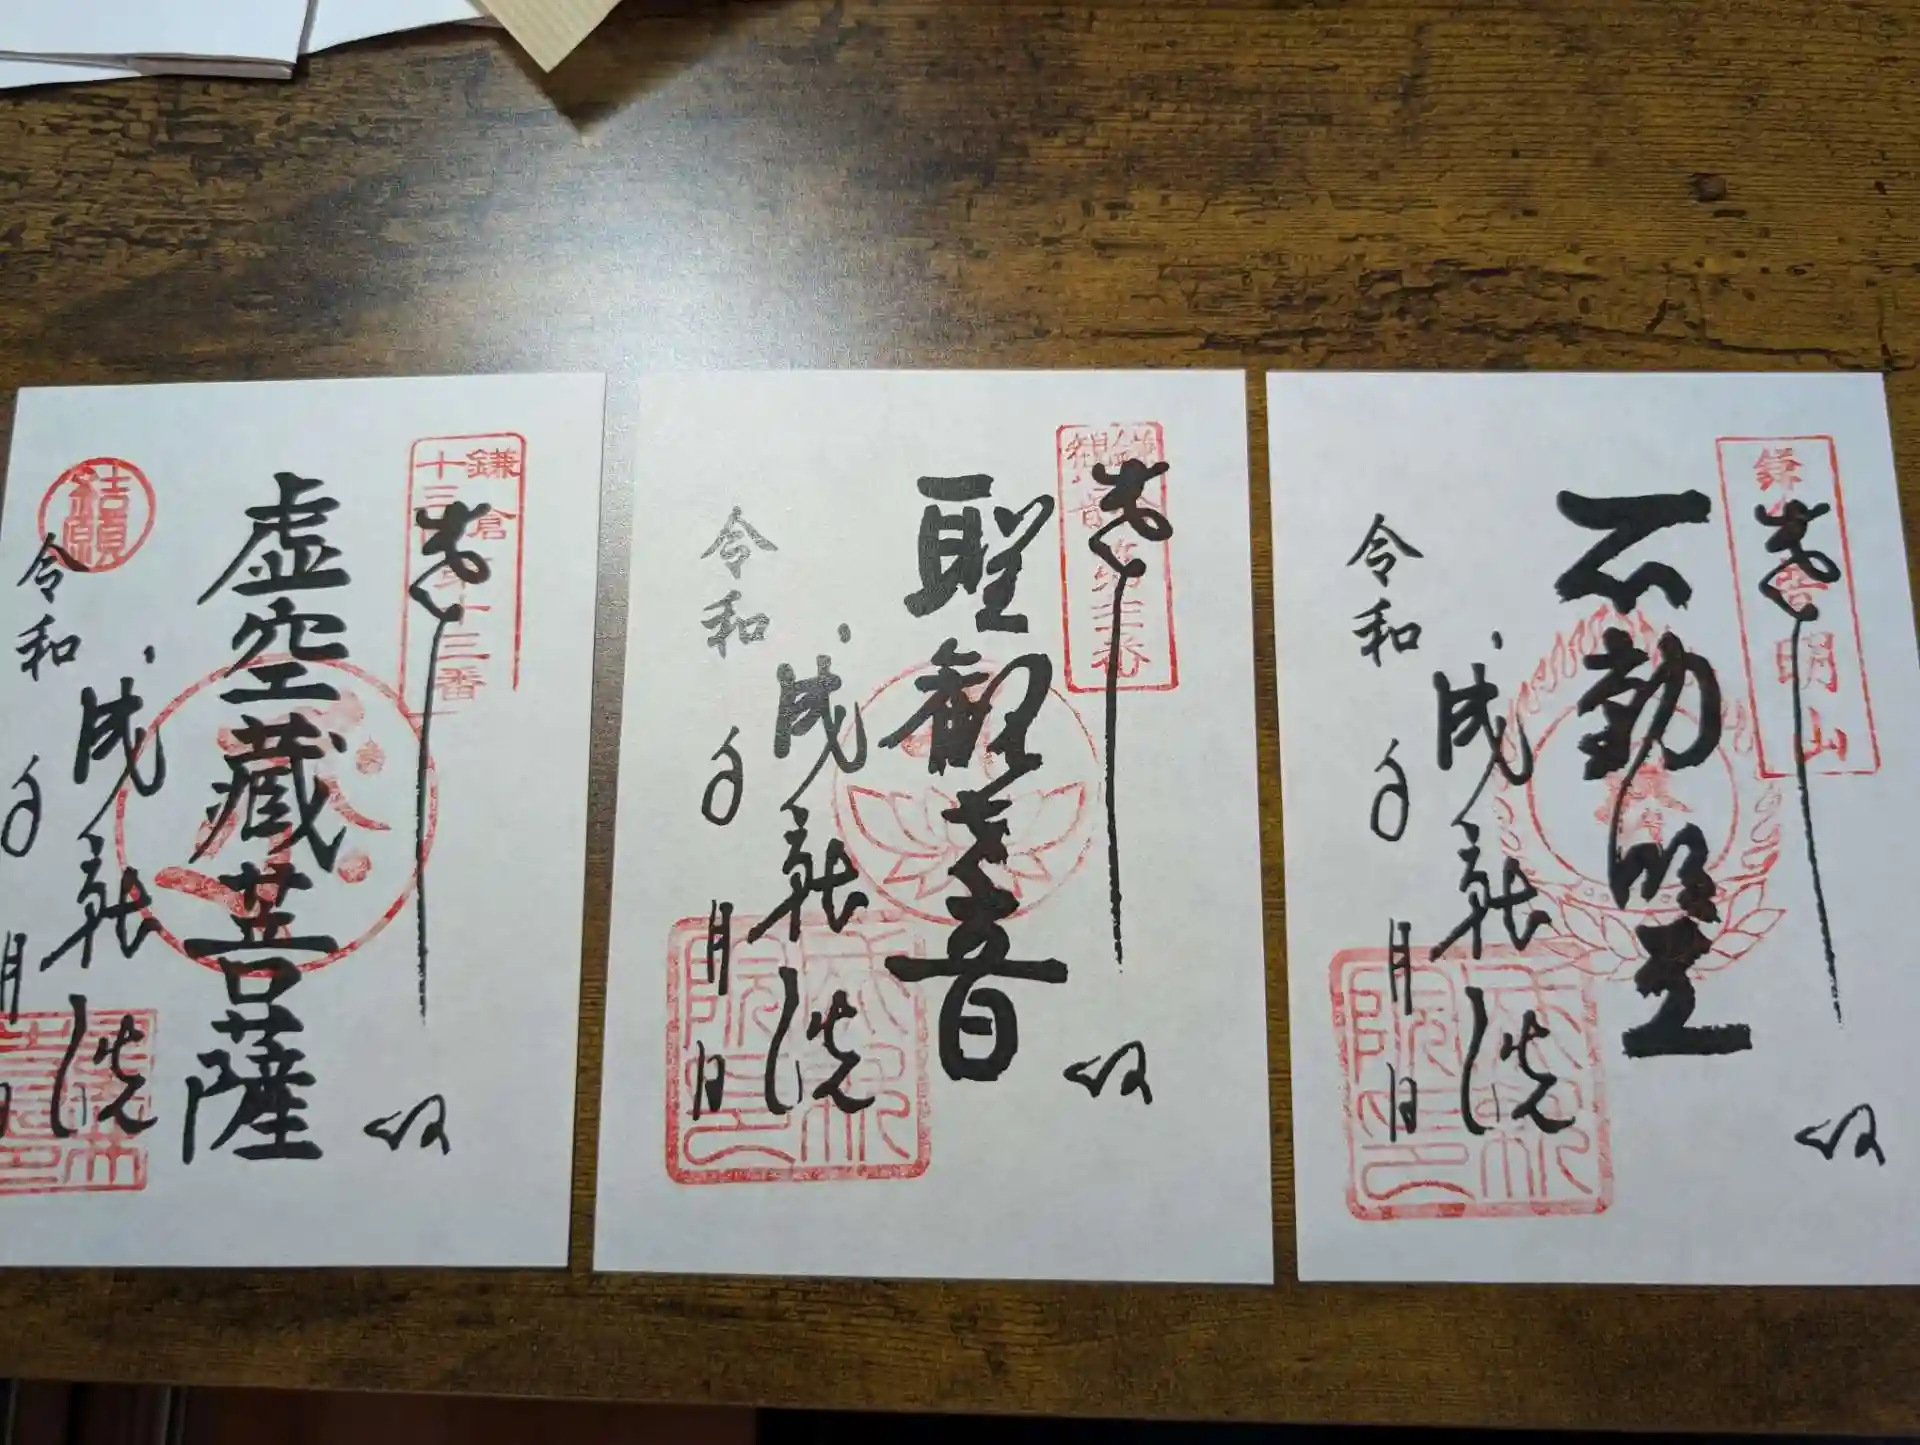 鎌倉
十三
十三番
奉
拝
虚空蔵菩薩
成就院
結願
令和
年
月
日
奉
拝
聖観世音
成就院
令和
年
月
日
鎌
明山
奉
拝
不動明王
成就院
令和
年
月
日